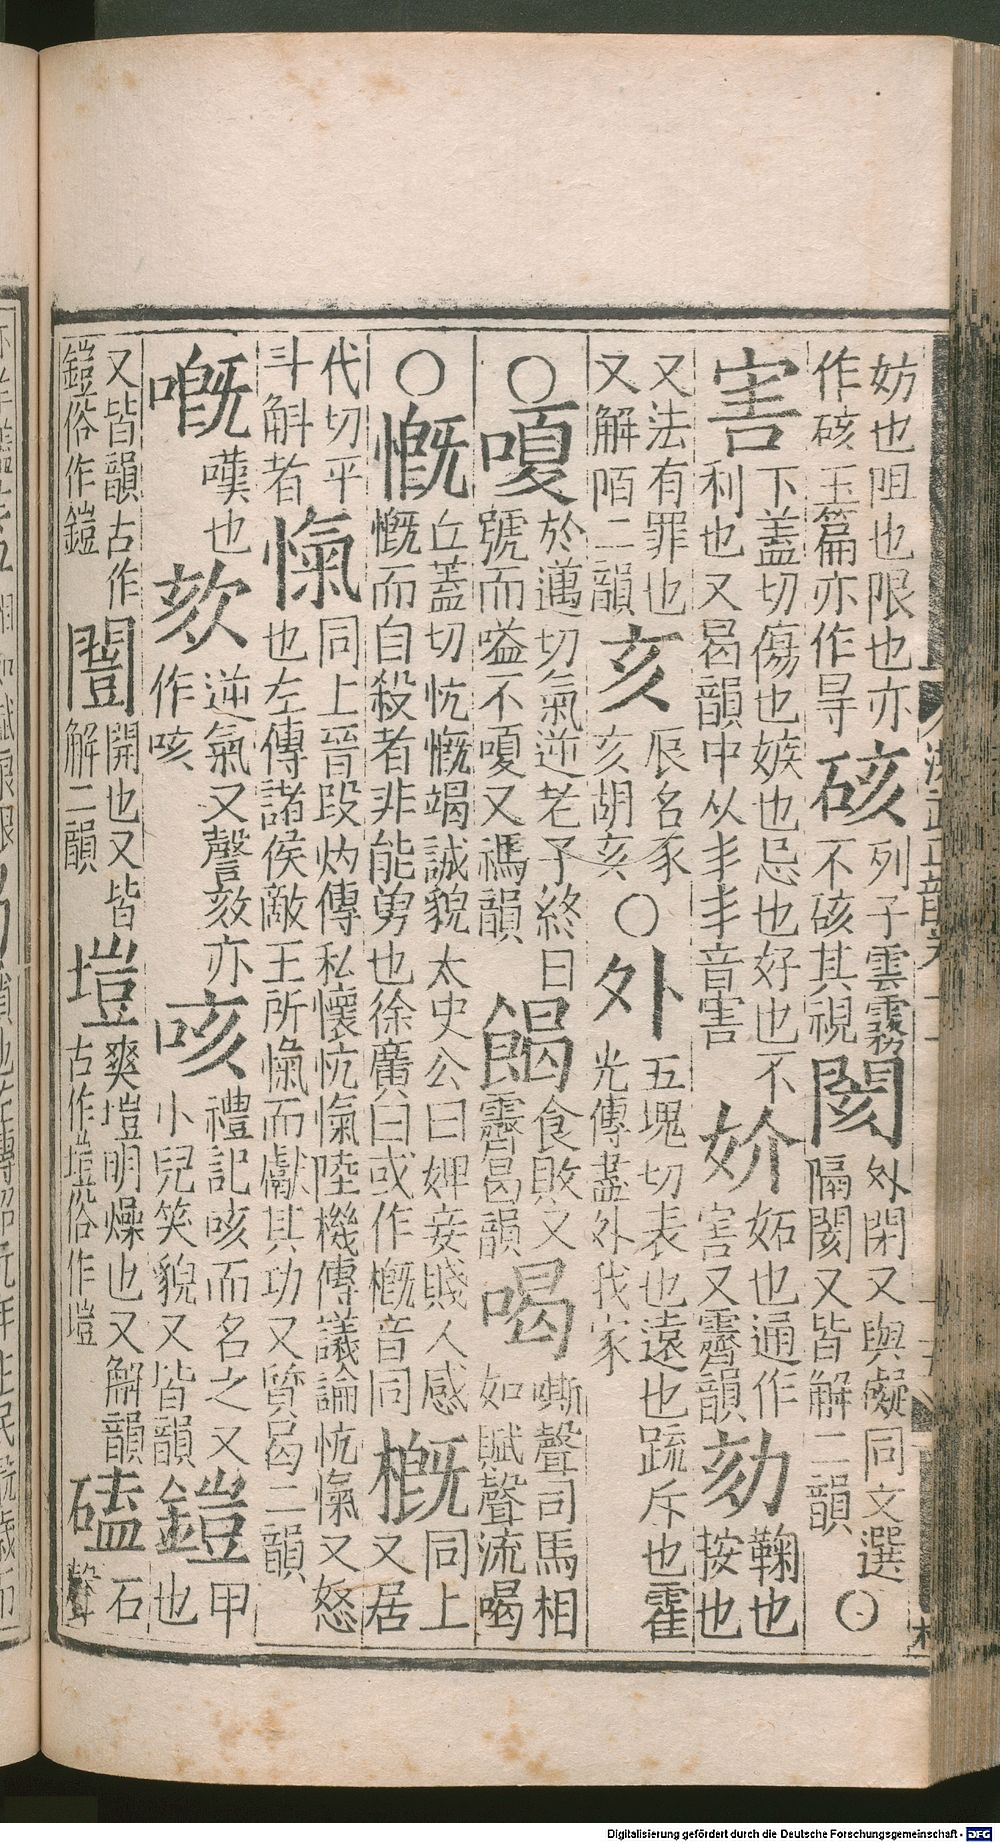 妨也阻也限也亦作硋玉篇亦作㝵硋列子雲霧不硋其視閡外閉又與礙同文選隔閡又皆解二韻○
害下蓋切傷也嫉也忌也好也不利也又曷韻中从丯丯音害妎妬也通作害又霽韻劾鞠也按也
又法有罪也又解陌二韻亥辰名豕亥胡亥○外五塊切表也遠也疏斥也霍光傳盡外我家
○嗄於邁切氣逆老子終日號而嗌不嗄又禡韻餲食敗又霽曷韻喝嘶聲司馬相如賦聲流喝
○慨丘蓋切忼慨竭誠貌太史公曰婢妾賤人感慨而自殺者非能勇也徐廣曰或作概音同概同上又居
代切平斗斛者愾同上晉段灼傳私懷忼愾陸機傳議論忼愾又怒也左傳諸侯敵王所愾而獻其功又質曷二韻
嘅嘆也欬逆氣又謦欬亦作咳咳禮記咳而名之又小兒笑貌又皆韻鎧甲也
又皆韻古作鎧俗作鎧闓開也又皆解二韻塏爽塏明燥也又解韻古作塏俗作塏磕石聲
Digitalisierung gefördert durch die Deutsche Forschungsgemeinschaft - DFG